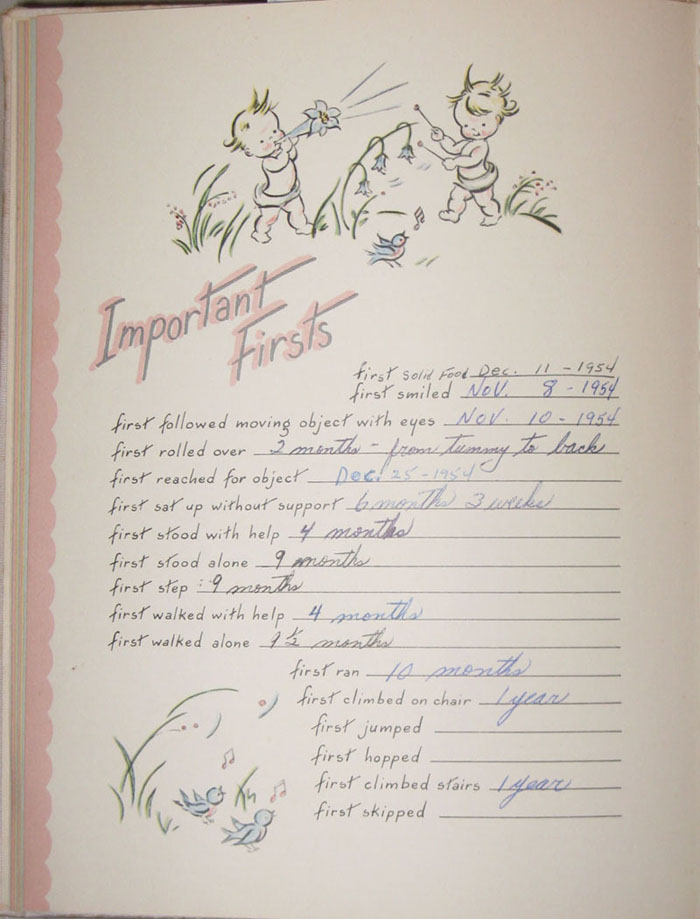 Important
Firsts
first solid Food Dec. 11 - 1954
first smiled Nov. 8 - 1954
first followed moving object with eyes Nov. 10 - 1954
first rolled over 2 months - from tummy to back
first reached for object Dec. 25 - 1954
first sat up without support 6 months 3 weeks
first stood with help 4 months
first stood alone 9 months
first step : 9 months
first walked with help 4 months
first walked alone 9 1/2 months
first ran 10 months
first climbed on chair 1 year
first jumped
first hopped
first climbed stairs 1 year
first skipped